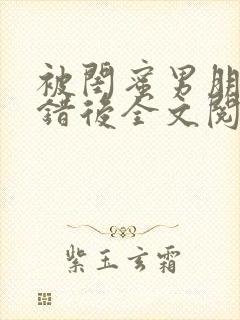 被閨蜜男朋
錯後全文閱
紫玉玄霜